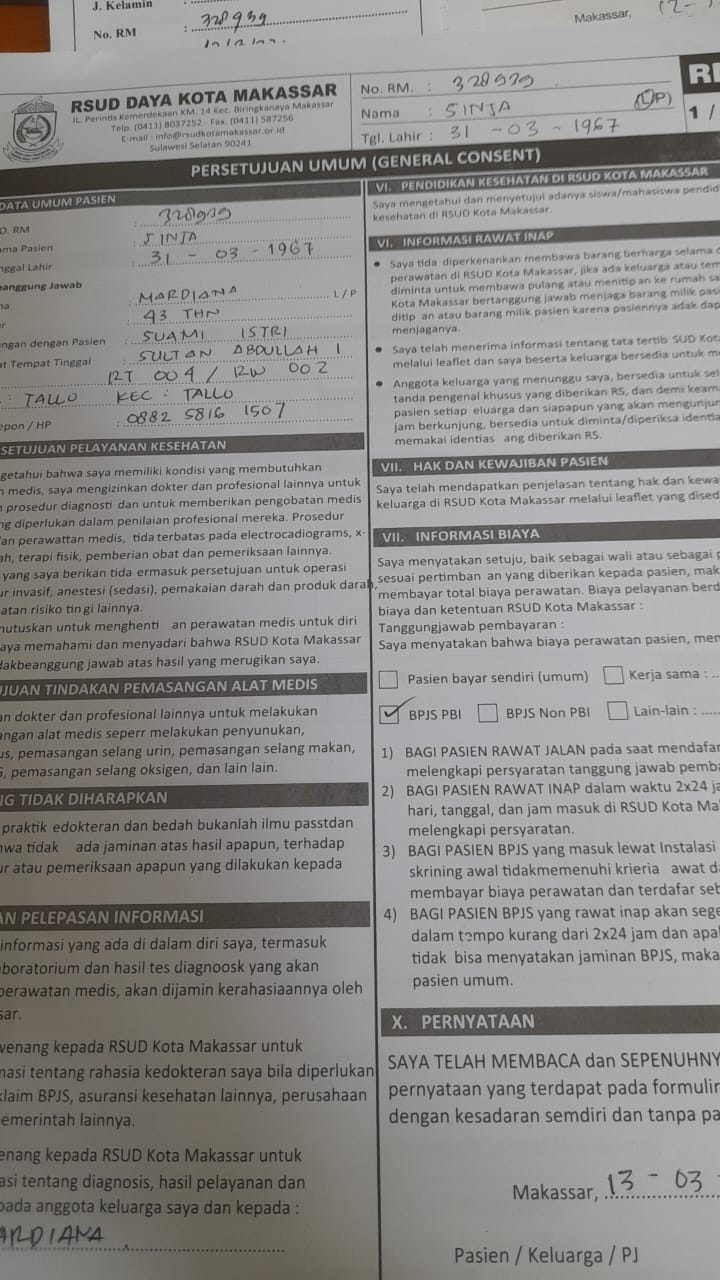 J. Kelamin
No. RM : 328939
Makassar,
RSUD DAYA KOTA MAKASSAR
JL. Perintis Kemerdekaan KM. 14 Kec. Biringkanaya Makassar
Telp. (0411) 8037252 - Fax. (0411) 587256
E-mail : info@rsudkotamakassar.or.id
Sulawesi Selatan 90241
No. RM. : 328939
Nama : SINJA (L/P)
Tgl. Lahir : 31 - 03 - 1967
1 /
PERSETUJUAN UMUM (GENERAL CONSENT)
DATA UMUM PASIEN
O. RM : 328939
ama Pasien : SINJA
nggal Lahir : 31 - 03 - 1967
anggung Jawab
na : MARDIANA L/P
r : 43 THN
ngan dengan Pasien : SUAMI ISTRI
at Tempat Tinggal : SULTAN ABDULLAH 1
RT 004 / RW 002
: TALLO KEC : TALLO
epon / HP : 0882 5816 1507
SETUJUAN PELAYANAN KESEHATAN
getahui bahwa saya memiliki kondisi yang membutuhkan
n medis, saya mengizinkan dokter dan profesional lainnya untuk
n prosedur diagnosti dan untuk memberikan pengobatan medis
ng diperlukan dalam penilaian profesional mereka. Prosedur
an perawattan medis, tida terbatas pada electrocadiograms, x-
ah, terapi fisik, pemberian obat dan pemeriksaan lainnya.
yang saya berikan tida ermasuk persetujuan untuk operasi
ur invasif, anestesi (sedasi), pemakaian darah dan produk darah,
atan risiko tin gi lainnya.
nutuskan untuk menghenti an perawatan medis untuk diri
aya memahami dan menyadari bahwa RSUD Kota Makassar
dakbeanggung jawab atas hasil yang merugikan saya.
UJUAN TINDAKAN PEMASANGAN ALAT MEDIS
an dokter dan profesional lainnya untuk melakukan
angan alat medis seperr melakukan penyunukan,
us, pemasangan selang urin, pemasangan selang makan,
, pemasangan selang oksigen, dan lain lain.
NG TIDAK DIHARAPKAN
praktik edokteran dan bedah bukanlah ilmu passtdan
hwa tidak ada jaminan atas hasil apapun, terhadap
ur atau pemeriksaan apapun yang dilakukan kepada
AN PELEPASAN INFORMASI
informasi yang ada di dalam diri saya, termasuk
boratorium dan hasil tes diagnoosk yang akan
perawatan medis, akan dijamin kerahasiaannya oleh
sar.
wenang kepada RSUD Kota Makassar untuk
masi tentang rahasia kedokteran saya bila diperlukan
klaim BPJS, asuransi kesehatan lainnya, perusahaan
emerintah lainnya.
enang kepada RSUD Kota Makassar untuk
asi tentang diagnosis, hasil pelayanan dan
pada anggota keluarga saya dan kepada :
ARDIANA
VI. PENDIDIKAN KESEHATAN DI RSUD KOTA MAKASSAR
Saya mengetahui dan menyetujui adanya siswa/mahasiswa pendid
kesehatan di RSUD Kota Makassar.
VI. INFORMASI RAWAT INAP
• Saya tida diperkenankan membawa barang berharga selama
perawatan di RSUD Kota Makassar, jika ada keluarga atau tem
diminta untuk membawa pulang atau menitip an ke rumah sa
Kota Makassar bertanggung jawab menjaga barang milik pasi
ditip an atau barang milik pasien karena pasiennya adak dap
menjaganya.
• Saya telah menerima informasi tentang tata tertib SUD Kot
melalui leaflet dan saya beserta keluarga bersedia untuk m
• Anggota keluarga yang menunggu saya, bersedia untuk sel
tanda pengenal khusus yang diberikan RS, dan demi keam
pasien setiap eluarga dan siapapun yang akan mengunjun
jam berkunjung, bersedia untuk diminta/diperiksa identia
memakai identias ang diberikan RS.
VII. HAK DAN KEWAJIBAN PASIEN
Saya telah mendapatkan penjelasan tentang hak dan kewa
keluarga di RSUD Kota Makassar melalui leaflet yang dised
VII. INFORMASI BIAYA
Saya menyatakan setuju, baik sebagai wali atau sebagai p
sesuai pertimban an yang diberikan kepada pasien, mak
membayar total biaya perawatan. Biaya pelayanan berd
biaya dan ketentuan RSUD Kota Makassar :
Tanggungjawab pembayaran :
Saya menyatakan bahwa biaya perawatan pasien, mer
Pasien bayar sendiri (umum) Kerja sama : ..
BPJS PBI BPJS Non PBI Lain-lain : .....
1) BAGI PASIEN RAWAT JALAN pada saat mendafar
melengkapi persyaratan tanggung jawab pemba
2) BAGI PASIEN RAWAT INAP dalam waktu 2x24 ja
hari, tanggal, dan jam masuk di RSUD Kota Ma
melengkapi persyaratan.
3) BAGI PASIEN BPJS yang masuk lewat Instalasi
skrining awal tidakmemenuhi krieria awat d
membayar biaya perawatan dan terdafar seb
4) BAGI PASIEN BPJS yang rawat inap akan sege
dalam tempo kurang dari 2x24 jam dan apal
tidak bisa menyatakan jaminan BPJS, maka
pasien umum.
X. PERNYATAAN
SAYA TELAH MEMBACA dan SEPENUHNY
pernyataan yang terdapat pada formulir
dengan kesadaran semdiri dan tanpa pa
Makassar, 13 - 03 -
Pasien / Keluarga / PJ